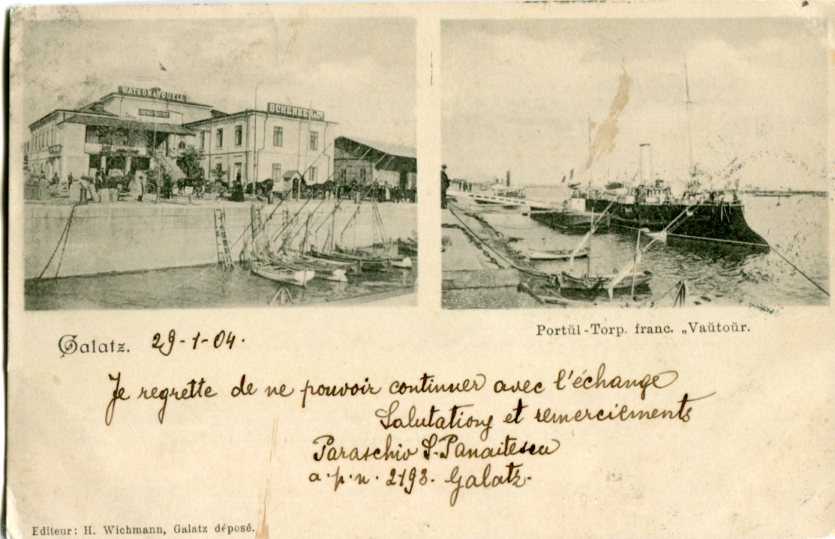 WATSON & YOUELL
Portŭl-Torp. franc. „Vaŭtoŭr.
Galatz. 29-1-04.
Je regrette de ne pouvoir continuer avec l'échange
Salutations et remerciements
Paraschiv S. Panaitescu
a.p.n. 2193. Galatz.
Editeur: H. Wichmann, Galatz déposé.